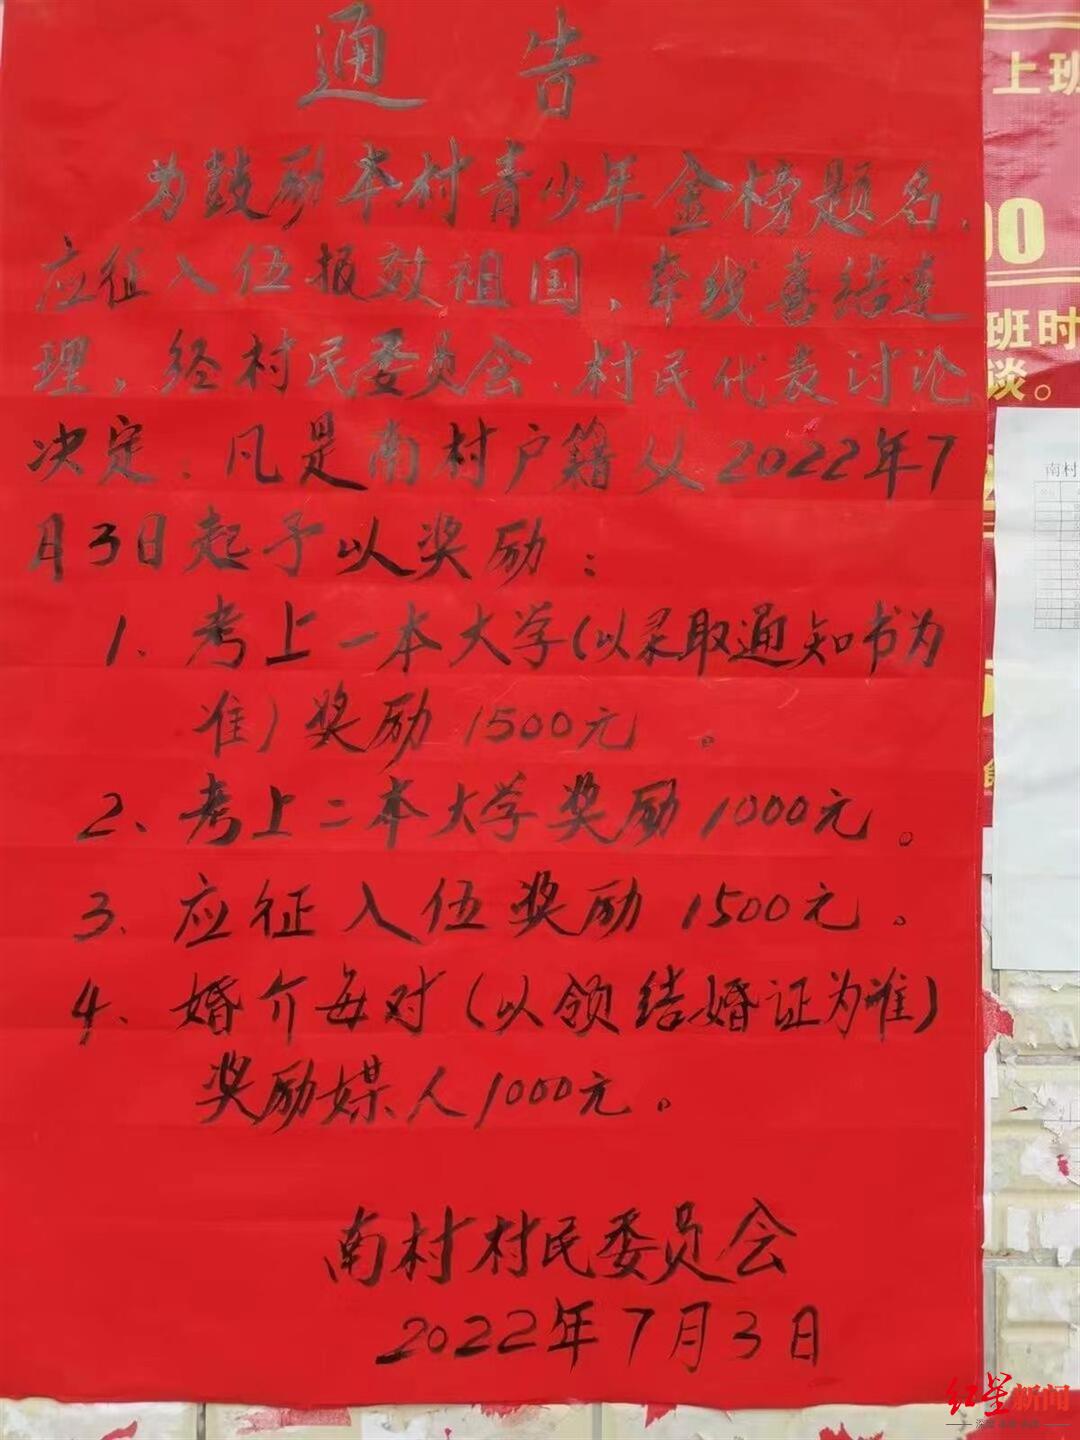 通告
为鼓励本村青少年金榜题名、
应征入伍报效祖国，牵线喜结连
理，经村民委员会、村民代表讨论
决定，凡是南村户籍从2022年7
月3日起予以奖励：
1、考上一本大学(以录取通知书为
准)奖励1500元。
2、考上二本大学奖励1000元。
3、应征入伍奖励1500元。
4、婚介每对(以领结婚证为准)
奖励媒人1000元。
南村村民委员会
2022年7月3日
上班
00
班时
谈。
南村
红星新闻